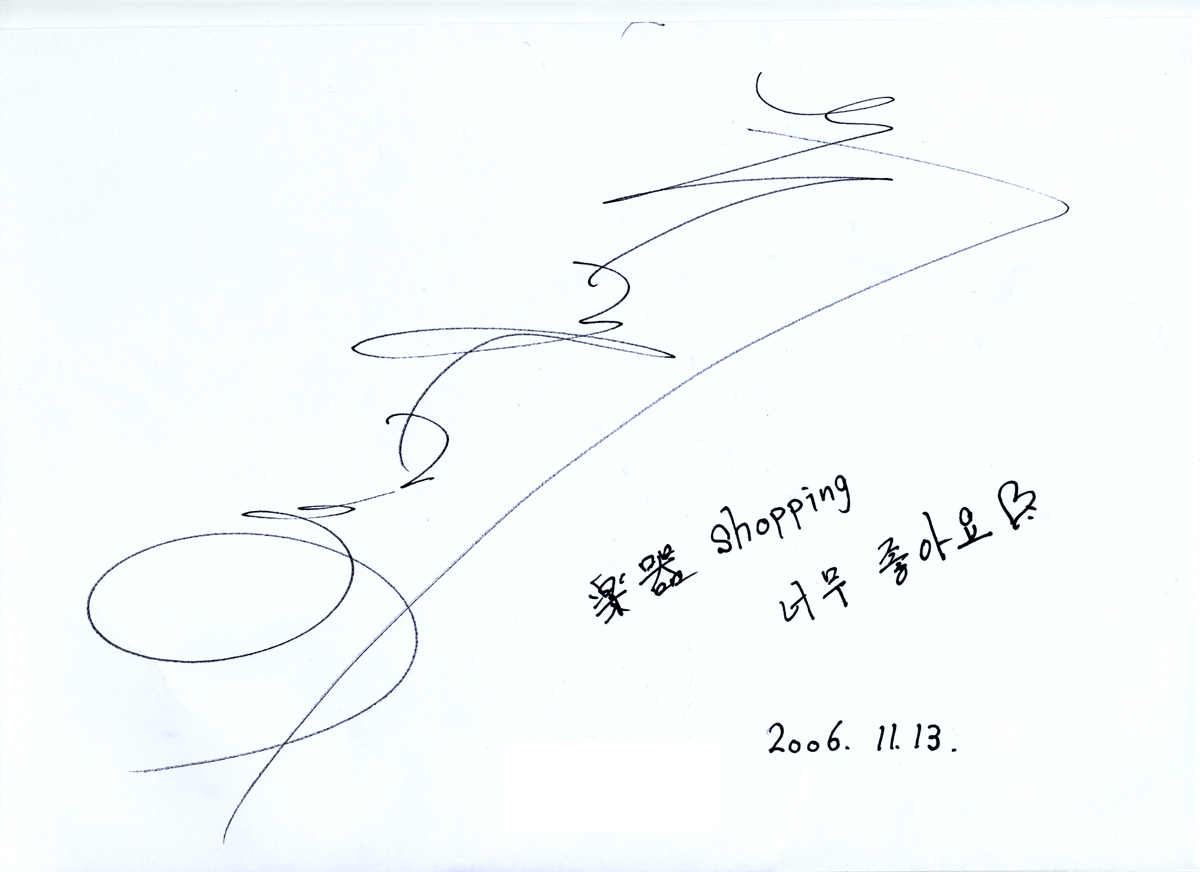 楽器 shopping
너무 좋아요♡
2006. 11. 13.